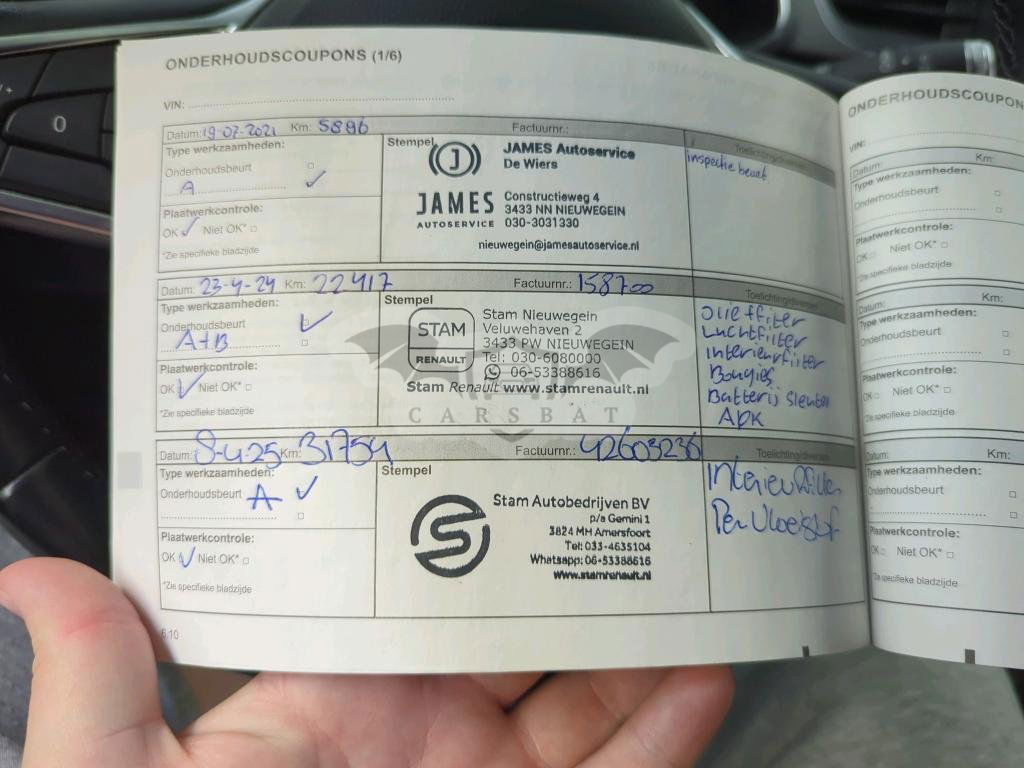 ONDERHOUDSCOUPONS (1/6)
VIN:
Datum: 19-07-2021 Km: 5896 Factuurnr.:
Type werkzaamheden:
Onderhoudsbeurt
A
Plaatwerkcontrole:
OK Niet OK*
*Zie specifieke bladzijde
Stempel
JAMES Autoservice
De Wiers
JAMES
AUTOSERVICE
Constructieweg 4
3433 NN NIEUWEGEIN
030-3031330
nieuwegein@jamesautoservice.nl
Toelichting/diversen
inspectie beurt
Datum: 23-4-24 Km: 22417 Factuurnr.: 158700
Type werkzaamheden:
Onderhoudsbeurt
A+B
Plaatwerkcontrole:
OK Niet OK*
*Zie specifieke bladzijde
Stempel
STAM
RENAULT
Stam Nieuwegein
Veluwehaven 2
3433 PW NIEUWEGEIN
Tel: 030-6080000
06-53388616
Stam Renault www.stamrenault.nl
Toelichting/diversen
Oliefilter
Luchtfilter
Interieurfilter
Bougies
Batterij sleutel
APK
CARSBAT
Datum: 8-4-25 Km: 31754 Factuurnr.: 42603236
Type werkzaamheden:
Onderhoudsbeurt
A
Plaatwerkcontrole:
OK Niet OK*
*Zie specifieke bladzijde
Stempel
Stam Autobedrijven BV
p/a Gemini 1
3824 MH Amersfoort
Tel: 033-4635104
Whatsapp: 06-53388616
www.stamrenault.nl
Toelichting/diversen
Interieurfilter
Rem Vloeistof
6.10
ONDERHOUDSCOUPON
VIN:
Datum: Km:
Type werkzaamheden:
Onderhoudsbeurt
Plaatwerkcontrole:
OK Niet OK*
*Zie specifieke bladzijde
Datum: Km:
Type werkzaamheden:
Onderhoudsbeurt
Plaatwerkcontrole:
OK Niet OK*
*Zie specifieke bladzijde
Datum: Km:
Type werkzaamheden:
Onderhoudsbeurt
Plaatwerkcontrole:
OK Niet OK*
*Zie specifieke bladzijde